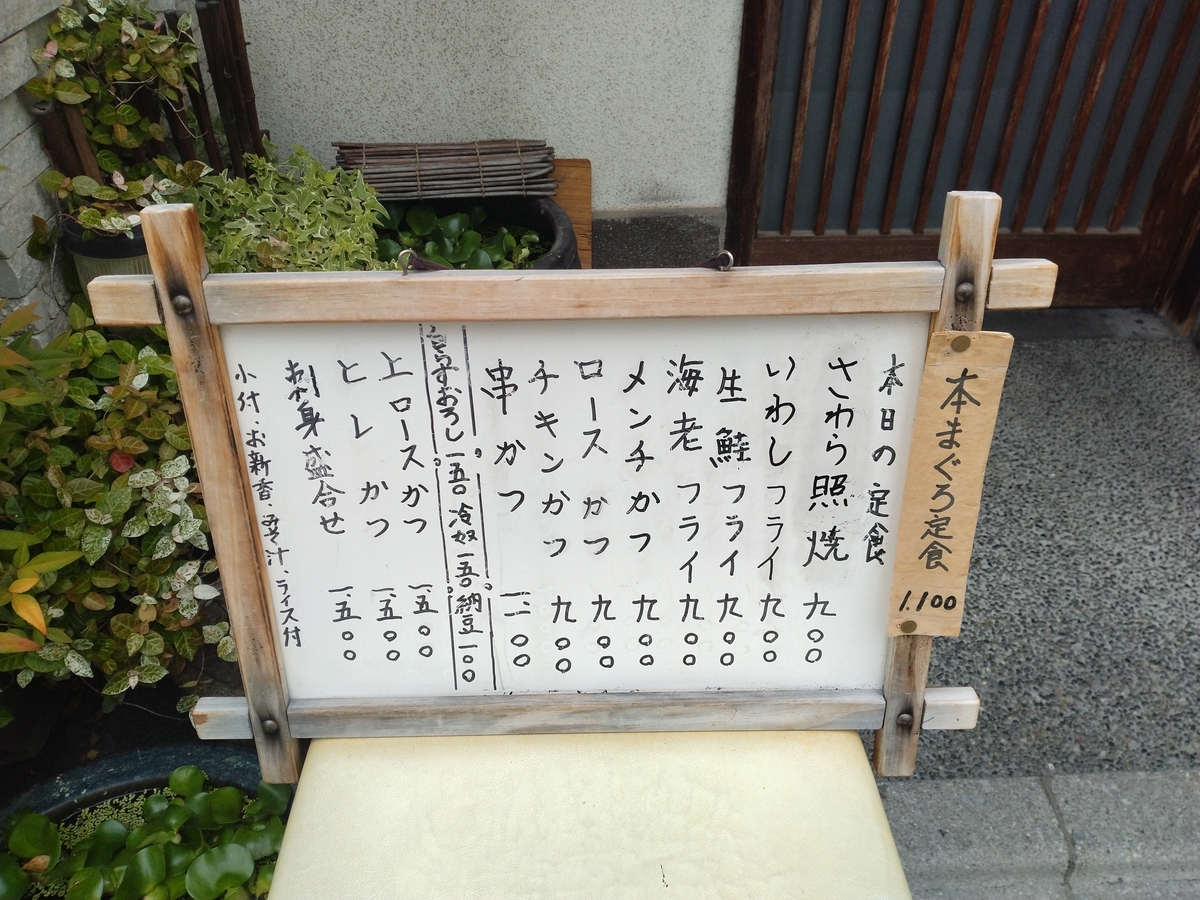 本まぐろ定食 1.100
本日の定食
さわら照焼 九〇〇
いわしフライ 九〇〇
生鮭フライ 九〇〇
海老フライ 九〇〇
メンチかつ 九〇〇
ロースかつ 九〇〇
チキンかつ 九〇〇
串かつ 一、一〇〇
白らすおろし 一五〇 冷奴 一五〇 納豆 一〇〇
上ロースかつ 一、五〇〇
ヒレかつ 一、五〇〇
刺身盛合せ 一、五〇〇
小付、お新香、みそ汁、ライス付